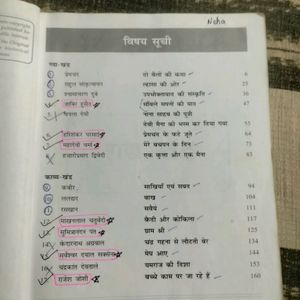 Neha
विषय सूची
गद्य-खंड
प्रेमचंद दो बैलों की कथा 6
राहुल सांकृत्यायन ल्हासा की ओर 25
श्यामाचरण दुबे उपभोक्तावाद की संस्कृति 36
जाबिर हुसैन साँवले सपनों की याद 47
चपला देवी नाना साहब की पुत्री
देवी मैना को भस्म कर दिया गया 55
हरिशंकर परसाई प्रेमचंद के फटे जूते 64
महादेवी वर्मा मेरे बचपन के दिन 73
हजारीप्रसाद द्विवेदी एक कुत्ता और एक मैना 83
काव्य-खंड
कबीर साखियाँ एवं सबद 94
ललद्यद वाख 104
रसखान सवैये 111
माखनलाल चतुर्वेदी कैदी और कोकिला 117
सुमित्रानंदन पंत ग्राम श्री 125
14. केदारनाथ अग्रवाल चंद्र गहना से लौटती बेर
सर्वेश्वर दयाल सक्सेना मेघ आए
16. चंद्रकांत देवताले यमराज की दिशा 153
राजेश जोशी बच्चे काम पर जा रहे हैं 160